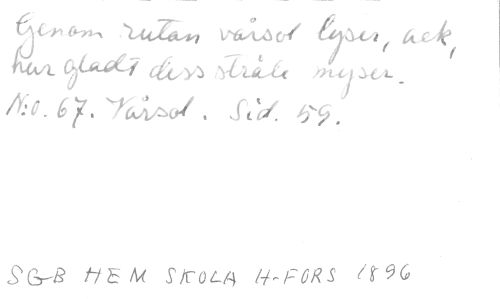 Genom rutan vårsol lyser, ack,
hur gladt dess stråle myser.
N:o. 67. Vårsol. Sid. 59.
SGB HEM SKOLA H-FORS 1896